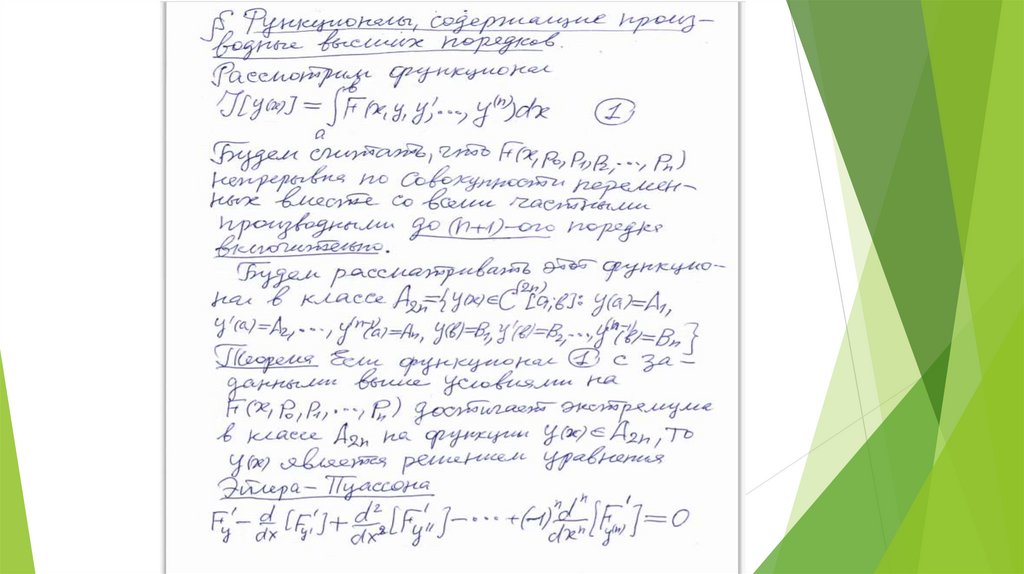 § Функционалы, содержащие произ-
водные высших порядков.
Рассмотрим функционал
J[y(x)] = ∫_a^b F(x, y, y', ..., y^(n))dx (1)
Будем считать, что F(x, p₀, p₁, p₂, ..., pₙ)
непрерывна по совокупности перемен-
ных вместе со всеми частными
производными до (n+1)-ого порядка
включительно.
Будем рассматривать этот функцио-
нал в классе A₂ₙ={y(x)∈C^(2n)[a;b]: y(a)=A₁,
y'(a)=A₂, ..., y^(n-1)(a)=Aₙ, y(b)=B₁, y'(b)=B₂, ..., y^(n-1)(b)=Bₙ}
Теорема Если функционал (1) с за-
данными выше условиями на
F(x, p₀, p₁, ..., pₙ) достигает экстремума
в классе A₂ₙ на функции y(x)∈A₂ₙ, то
y(x) является решением уравнения
Эйлера-Пуассона
F'_y - d/dx [F'_y'] + d²/dx² [F'_y''] - ... + (-1)ⁿ dⁿ/dxⁿ [F'_y^(n)] = 0